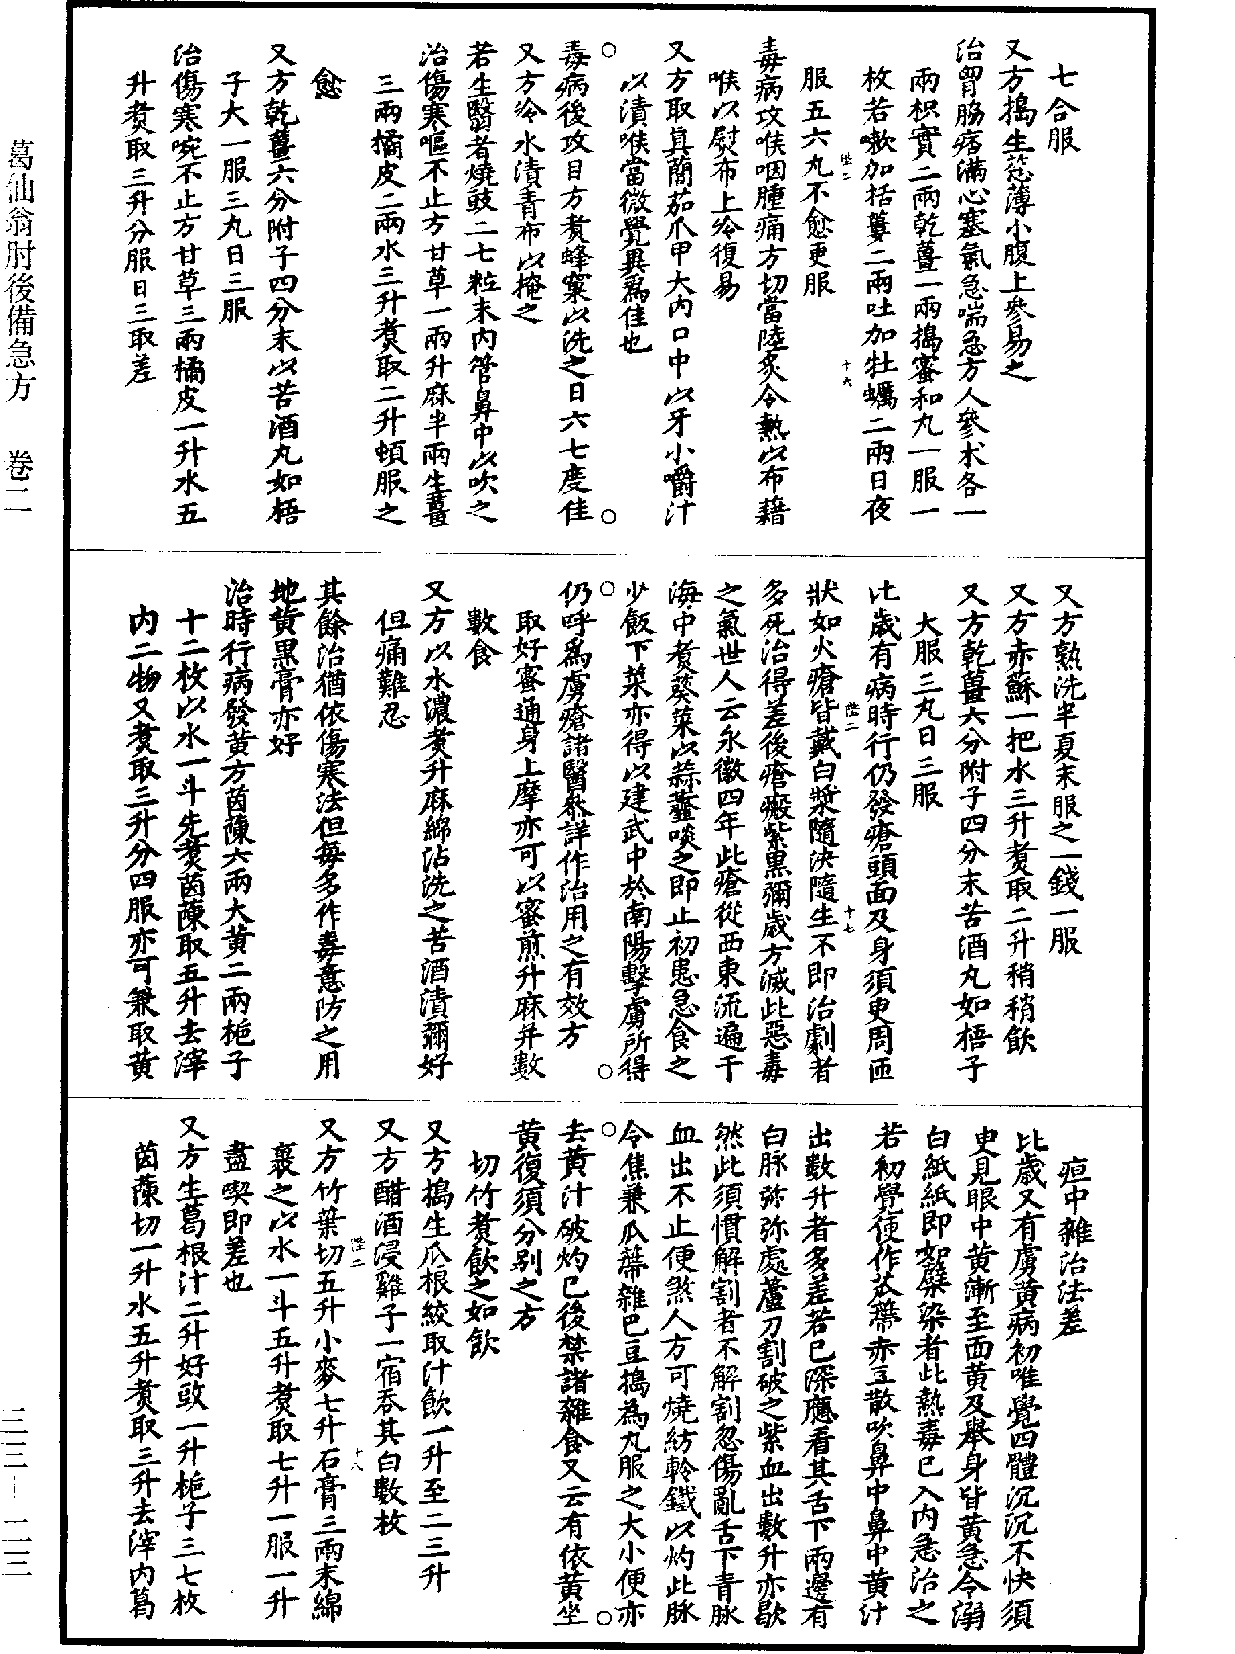 七合服
又方搗生葱薄小腹上參易之
治胷脇痞滿心塞氣急喘急方人參朮各一
兩枳實二兩乾薑一兩搗蜜和丸一服一
枚若嗽加栝蔞二兩吐加牡蠣二兩日夜
服五六丸不愈更服
毒病攻喉咽腫痛方切當陸炙令熱以布藉
喉以熨布上冷復易
又方取真䕡茹爪甲大內口中以牙小嚼汁
以漬喉當微覺異爲佳也
毒病後攻目方煑蜂窠以洗之日六七度佳
又方冷水漬青布以掩之
若生翳者燒豉二七粒末內管鼻中以吹之
治傷寒嘔不止方甘草一兩升麻半兩生薑
三兩橘皮二兩水三升煑取二升頓服之
愈
又方乾薑六分附子四分末以苦酒丸如梧
子大一服三丸日三服
治傷寒啘不止方甘草三兩橘皮一升水五
升煑取三升分服日三取差
又方熟洗半夏末服之一錢一服
又方赤蘇一把水三升煑取二升稍稍飲
又方乾薑六分附子四分末苦酒丸如梧子
大服三丸日三服
比歲有病時行仍發瘡頭面及身須臾周匝
狀如火瘡皆戴白漿隨決隨生不即治劇者
多死治得差後瘡瘢紫黑彌歲方滅此惡毒
之氣世人云永徽四年此瘡從西東流遍于
海中煑葵菜以蒜虀啖之即止初患急食之
少飯下菜亦得以建武中於南陽擊虜所得
仍呼爲虜瘡諸醫參詳作治用之有效方
取好蜜通身上摩亦可以蜜煎升麻并數
數食
又方以水濃煑升麻綿沾洗之苦酒漬彌好
但痛難忍
其餘治猶依傷寒法但每多作毒意防之用
地黃黑膏亦好
治時行病發黃方茵蔯六兩大黃二兩梔子
十二枚以水一斗先煑茵蔯取五升去滓
內二物又煑取三升分四服亦可兼取黃
疸中雜治法差
比歲又有虜黃病初唯覺四體沉沉不快須
臾見眼中黃漸至面黃及舉身皆黃急令溺
白紙紙即如蘗染者此熱毒已入內急治之
若初覺便作瓜蔕赤豆散吹鼻中鼻中黃汁
出數升者多差若已深應看其舌下兩邊有
白脉弥弥處蘆刀割破之紫血出數升亦歇
然此須慣解割者不解割忽傷亂舌下青脉
血出不止便煞人方可燒紡軨鐵以灼此脉
令焦兼瓜蔕雜巴豆搗為丸服之大小便亦
去黃汁破灼已後禁諸雜食又云有依黃坐
黃復須分别之方
切竹煑飲之如飲
又方搗生瓜根絞取汁飲一升至二三升
又方醋酒浸雞子一宿吞其白數枚
又方竹葉切五升小麥七升石膏三兩末綿
裹之以水一斗五升煑取七升一服一升
盡喫即差也
又方生葛根汁二升好豉一升梔子三七枚
茵蔯切一升水五升煑取三升去滓內葛
葛仙翁肘後備急方 卷二
三三–一二三
陛二
十六
陛二
十七
陛二
十八